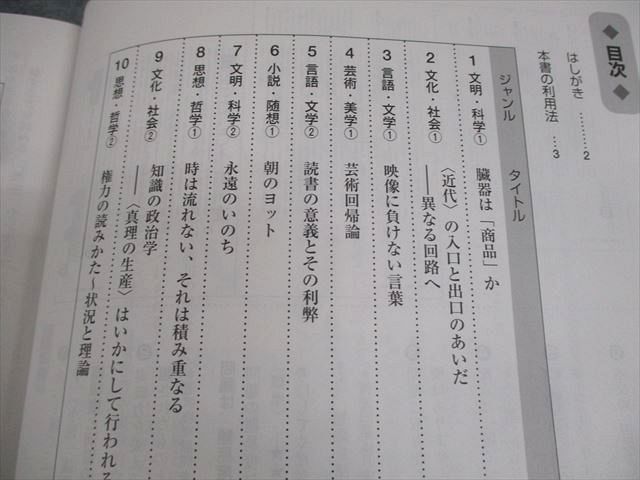 ◆目次◆
はしがき………2
本書の利用法…3
ジャンル
タイトル
1 文明・科学① 臓器は「商品」か
2 文化・社会① 〈近代〉の入口と出口のあいだ
――異なる回路へ
3 言語・文学① 映像に負けない言葉
4 芸術・美学① 芸術回帰論
5 言語・文学② 読書の意義とその利弊
6 小説・随想① 朝のヨット
7 文明・科学② 永遠のいのち
8 思想・哲学① 時は流れない、それは積み重なる
9 文化・社会② 知識の政治学
――〈真理の生産〉はいかにして行われる
10 思想・哲学② 権力の読みかた～状況と理論